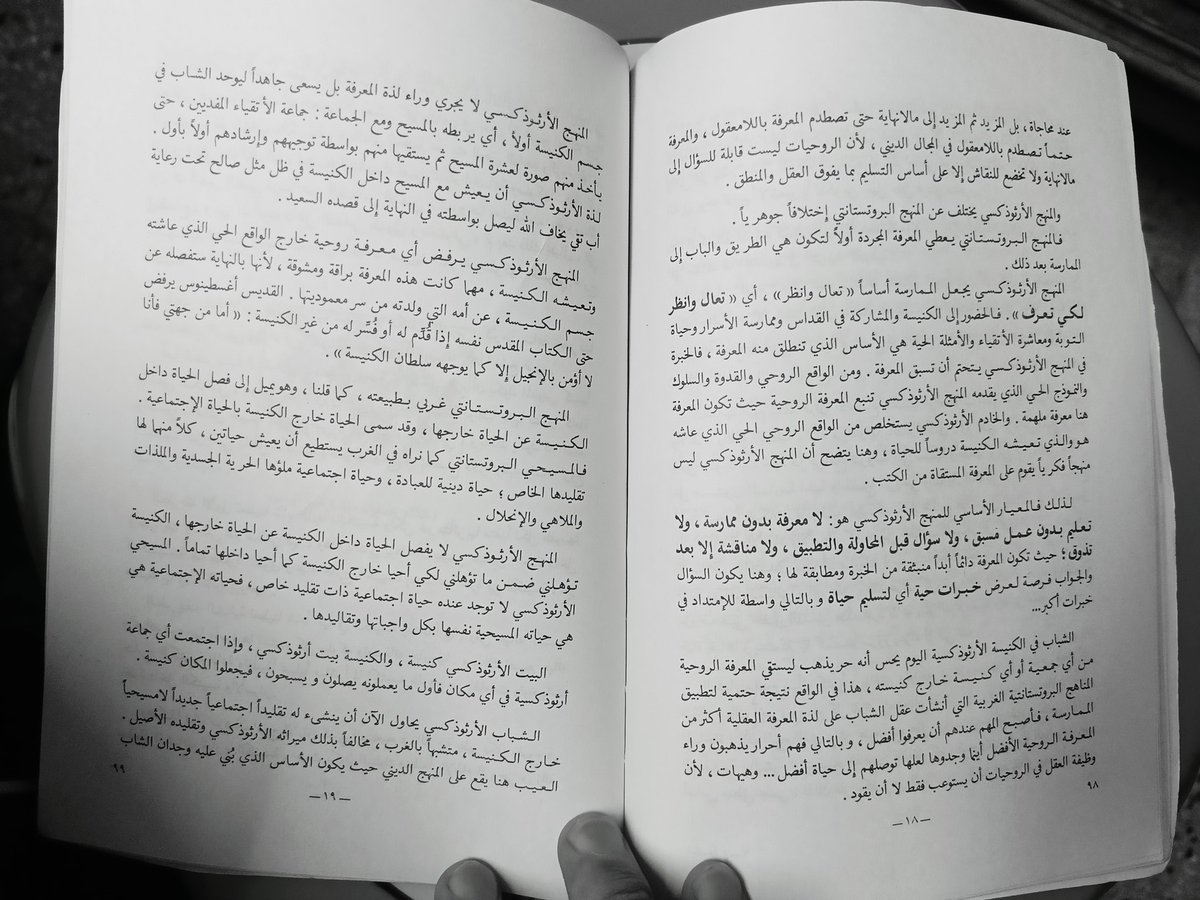 عند محاجاة ، بل المزيد ثم المزيد إلى مالانهاية حتى تصطدم المعرفة باللامعقول ، والمعرفة
حتماً تصطدم باللامعقول في المجال الديني ، لأن الروحيات ليست قابلة للسؤال إلى
مالانهاية ولا تخضع للنقاش إلا على أساس التسليم بما يفوق العقل والمنطق .
والمنهج الأرثوذكسي يختلف عن المنهج البروتستانتي إختلافاً جوهرياً .
فالمنهج البروتستانتي يعطي المعرفة المجردة أولاً لتكون هي الطريق والباب إلى
الممارسة بعد ذلك .
المنهج الأرثوذكسي يجعل الممارسة أساساً « تعال وانظر » ، أي « تعال وانظر
لكي تعرف » . فالحضور إلى الكنيسة والمشاركة في القداس وممارسة الأسرار وحياة
التوبة ومعاشرة الأتقياء والأمثلة الحية هي الأساس الذي تنطلق منه المعرفة ، فالخبرة
في المنهج الأرثوذكسي يتحتم أن تسبق المعرفة . ومن الواقع الروحي والقدوة والسلوك
والنموذج الحي الذي يقدمه المنهج الأرثوذكسي تنبع المعرفة الروحية حيث تكون المعرفة
هنا معرفة ملهمة . والخادم الأرثوذكسي يستخلص من الواقع الروحي الحي الذي عاشه
هو والذي تعيشه الكنيسة دروساً للحياة ، وهنا يتضح أن المنهج الأرثوذكسي ليس
منهجاً فكرياً يقوم على المعرفة المستقاة من الكتب .
لذلك فالمعيار الأساسي للمنهج الأرثوذكسي هو : لا معرفة بدون ممارسة ، ولا
تعليم بدون عمل مسبق ، ولا سؤال قبل المحاولة والتطبيق ، ولا مناقشة إلا بعد
تذوق ؛ حيث تكون المعرفة دائماً أبداً منبثقة من الخبرة ومطابقة لها ؛ وهنا يكون السؤال
والجواب فرصة لعرض خبرات حية أي لتسليم حياة وبالتالي واسطة للإمتداد في
خبرات أكبر...
الشباب في الكنيسة الأرثوذكسية اليوم يحس أنه حر يذهب ليستقي المعرفة الروحية
من أي جمعية أو أي كنيسة خارج كنيسته ، هذا في الواقع نتيجة حتمية لتطبيق
المناهج البروتستانتية الغربية التي أنشأت عقل الشباب على لذة المعرفة العقلية أكثر من
الممارسة ، فأصبح المهم عندهم أن يعرفوا أفضل ، وبالتالي فهم أحرار يذهبون وراء
المعرفة الروحية الأفضل أينما وجدوها لعلها توصلهم إلى حياة أفضل ... وهيهات ، لأن
وظيفة العقل في الروحيات أن يستوعب فقط لا أن يقود .
٩٨
— ١٨ —
المنهج الأرثوذكسي لا يجري وراء لذة المعرفة بل يسعى جاهداً ليوحد الشباب في
جسم الكنيسة أولاً ، أي يربطه بالمسيح ومع الجماعة : جماعة الأتقياء المفديين ، حتى
يأخذ منهم صورة لعشرة المسيح ثم يستقيها منهم بواسطة توجيههم وإرشادهم أولاً بأول .
لذة الأرثوذكسي أن يعيش مع المسيح داخل الكنيسة في ظل مثل صالح تحت رعاية
أب تقي يخاف الله ليصل بواسطته في النهاية إلى قصده السعيد .
المنهج الأرثوذكسي يرفض أي معرفة روحية خارج الواقع الحي الذي عاشته
وتعيشه الكنيسة ، مهما كانت هذه المعرفة براقة ومشوقة ، لأنها بالنهاية ستفصله عن
جسم الكنيسة ، عن أمه التي ولدته من سر معموديتها . القديس أغسطينوس يرفض
حتى الكتاب المقدس نفسه إذا قُدِّم له أو فُسِّر له من غير الكنيسة : « أما من جهتي فأنا
لا أؤمن بالإنجيل إلا كما يوجهه سلطان الكنيسة » .
المنهج البروتستانتي غربي بطبيعته ، كما قلنا ، وهو يميل إلى فصل الحياة داخل
الكنيسة عن الحياة خارجها ، وقد سمى الحياة خارج الكنيسة بالحياة الإجتماعية .
فالمسيحي البروتستانتي كما نراه في الغرب يستطيع أن يعيش حياتين ، كلاً منهما لها
تقليدها الخاص ؛ حياة دينية للعبادة ، وحياة اجتماعية ملؤها الحرية الجسدية والملذات
والملاهي والإنحلال .
المنهج الأرثوذكسي لا يفصل الحياة داخل الكنيسة عن الحياة خارجها ، الكنيسة
تؤهلني ضمن ما تؤهلني لكي أحيا خارج الكنيسة كما أحيا داخلها تماماً . المسيحي
الأرثوذكسي لا توجد عنده حياة اجتماعية ذات تقليد خاص ، فحياته الإجتماعية هي
هي حياته المسيحية نفسها بكل واجباتها وتقاليدها .
البيت الأرثوذكسي كنيسة ، والكنيسة بيت أرثوذكسي ، وإذا اجتمعت أي جماعة
أرثوذكسية في أي مكان فأول ما يعملونه يصلون و يسبحون ، فيجعلوا المكان كنيسة .
الشباب الأرثوذكسي يحاول الآن أن ينشىء له تقليداً اجتماعياً جديداً لامسيحياً
خارج الكنيسة ، متشبهاً بالغرب ، مخالفاً بذلك ميراثه الأرثوذكسي وتقليده الأصيل .
العيب هنا يقع على المنهج الديني حيث يكون الأساس الذي بُني عليه وجدان الشاب
٩٩
— ١٩ —